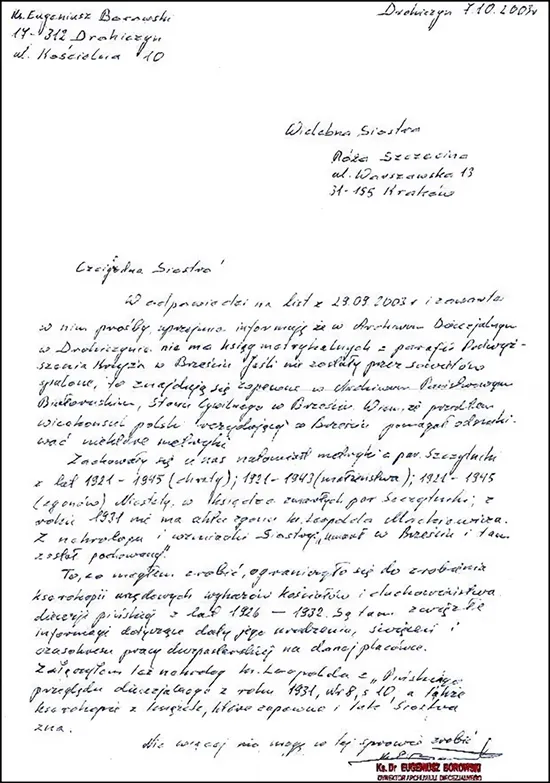 Ks. Eugeniusz Borowski
17-312 Drohiczyn
ul. Kościelna 10
Drohiczyn 7.10.2003r
Wielebna Siostra
Róża Szczecina
ul. Warszawska 13
31-155 Kraków
Czcigodna Siostro!
W odpowiedzi na list z 29.09.2003r i zawarte
w nim prośby, uprzejmie informuję że w Archiwum Diecezjalnym
w Drohiczynie nie ma ksiąg metrykalnych z parafii Podwyż-
szenia Krzyża w Brześciu. Jeśli nie zostały przez sowietów
spalone, to znajdują się zapewne w Archiwum Państwowym
Białoruskim, Stanu Cywilnego w Brześciu. Wiem, że przedtem
wicekonsul polski urzędujący w Brześciu pomagał odszuki-
wać niektóre metryki.
Zachowały się u nas natomiast metryki z par. Szczytniki
z lat 1921 - 1945 (chrzty); 1921-1943 (małżeństwa); 1921-1945
(zgonów). Niestety, w księdze zmarłych par. Szczytniki; z
roku 1931 nie ma aktu zgonu ks. Leopolda Mackiewicza.
Z nekrologu i wzmianki Siostry, "umarł w Brześciu i tam
został pochowany".
To, co mogłem zrobić, ograniczyło się do zrobienia
kserokopii urzędowych wykazów kościołów i duchowieństwa
diecezji pińskiej z lat 1926 - 1932. Są tam zwięzłe
informacje dotyczące daty jego urodzenia, święceń i
czasokresu pracy duszpasterskiej na danej placówce.
Załączyłem też nekrolog ks. Leopolda z "Pińskiego
przeglądu diecezjalnego" z roku 1931, Nr 8, s 10, a także
kserokopie z książek, które zapewne i tak Siostra
zna.
Nic więcej nie mogę w tej sprawie zrobić
Ks. Dr EUGENIUSZ BOROWSKI
DYREKTOR ARCHIWUM DIECEZJALNEGO